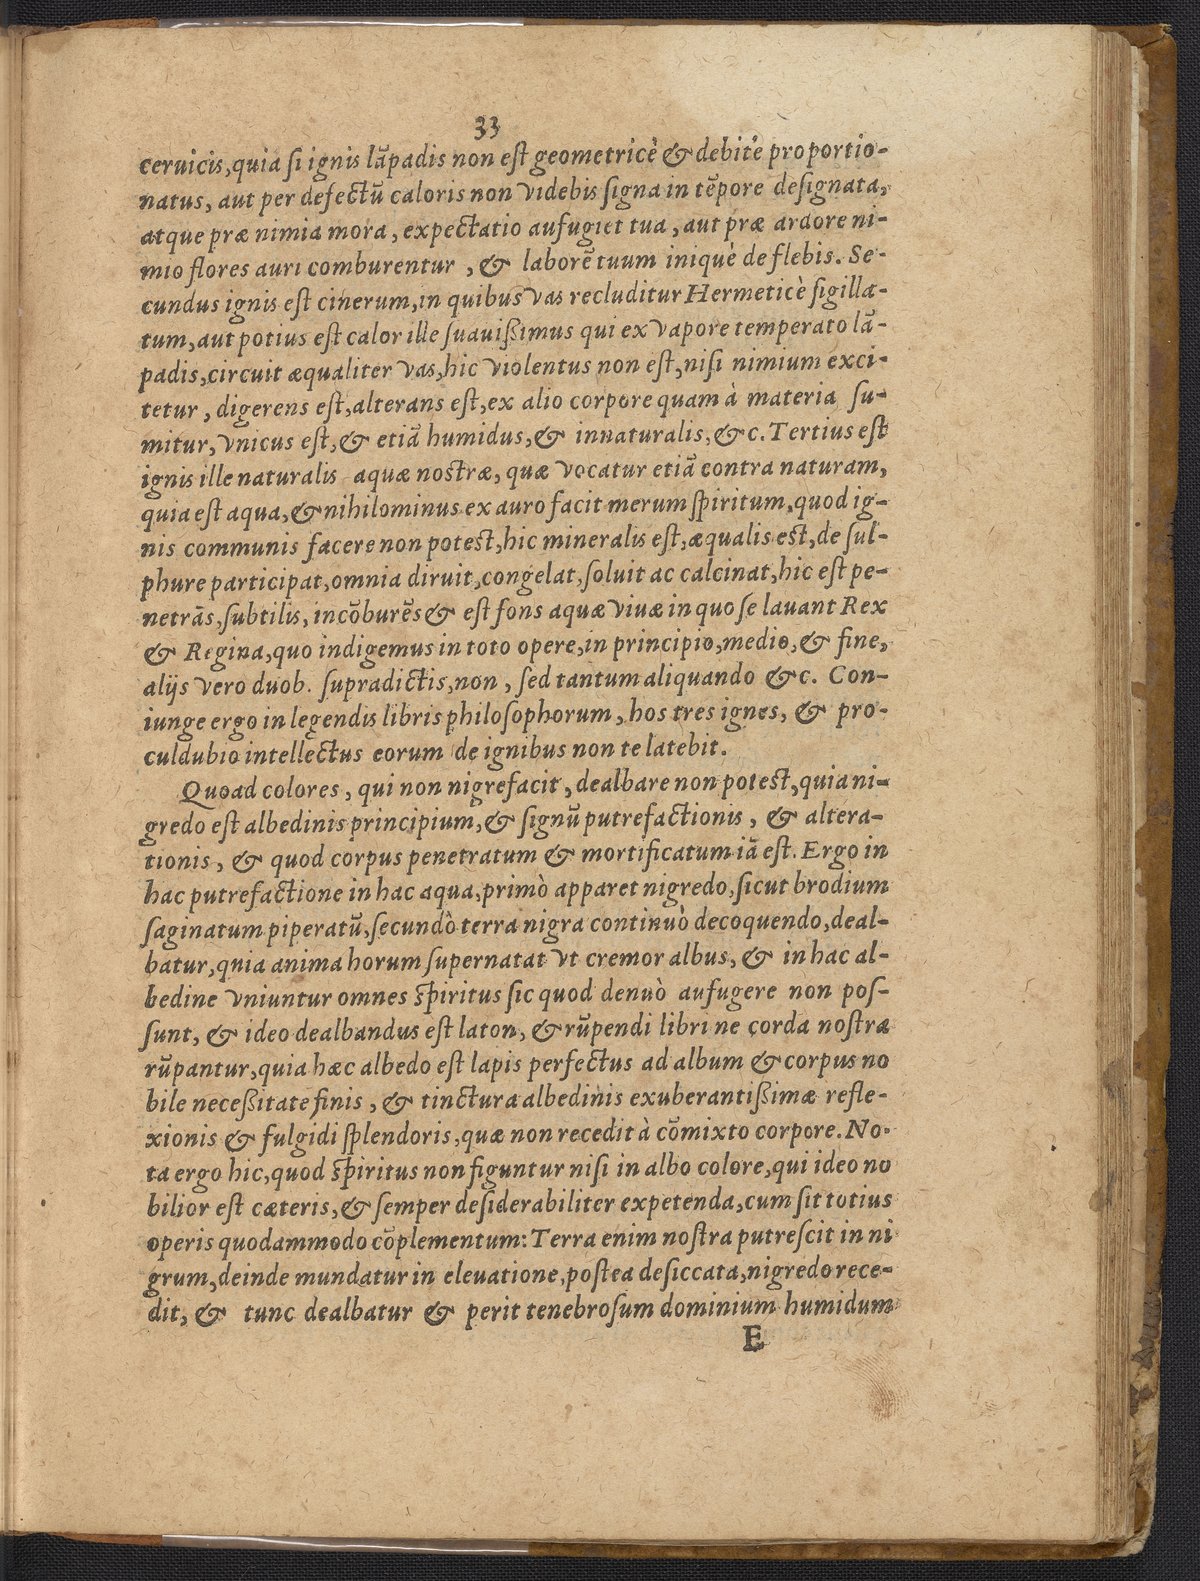 33
ceruicis,quia ſi ignis lãpadis non eſt geometricè & debitè proportio-
natus, aut per defectũ caloris non videbis ſigna in tẽpore deſignata,
atque præ nimia mora, expectatio aufugiet tua, aut præ ardore ni-
mio flores auri comburentur , & laborẽ tuum iniquè deflebis. Se-
cundus ignis eſt cinerum,in quibus vas recluditur Hermeticè ſigilla-
tum,aut potius eſt calor ille ſuauißimus qui ex vapore temperato lã-
padis,circuit æqualiter vas,hic violentus non eſt,niſi nimium exci-
tetur , digerens eſt,alterans eſt,ex alio corpore quam à materia ſu-
mitur, vnicus eſt,& etiã humidus,& innaturalis,&c.Tertius eſt
ignis ille naturalis aquæ nostræ, quæ vocatur etiã contra naturam,
quia est aqua,& nihilominus ex auro facit merum ſpiritum,quod ig-
nis communis facere non potest,hic mineralis eſt,æqualis est,de ſul-
phure participat,omnia diruit,congelat,ſoluit ac calcinat,hic eſt pe-
netrãs,ſubtilis,incõburẽs & eſt fons aquæ viuæ in quo ſe lauant Rex
& Regina,quo indigemus in toto opere,in principio,medio,& fine,
alijs vero duob. ſupradictis,non , ſed tantum aliquando &c. Con-
iunge ergo in legendis libris philoſophorum, hos tres ignes, & pro-
culdubio intellectus eorum de ignibus non te latebit.
Quoad colores , qui non nigrefacit , dealbare non potest,quia ni-
gredo eſt albedinis principium,& ſignũ putrefactionis , & altera-
tionis , & quod corpus penetratum & mortificatum iã eſt. Ergo in
hac putrefactione in hac aqua,primò apparet nigredo,ſicut brodium
ſaginatum piperatũ,ſecundò terra nigra continuò decoquendo,deal-
batur,quia anima horum ſupernatat vt cremor albus, & in hac al-
bedine vniuntur omnes ſpiritus ſic quod denuò aufugere non poſ-
ſunt, & ideo dealbandus eſt laton, & rũpendi libri ne corda noſtra
rũpantur,quia hæc albedo eſt lapis perfectus ad album & corpus no
bile neceßitate finis , & tinctura albedinis exuberantißimæ refle-
xionis & fulgidi ſplendoris,quæ non recedit à cõmixto corpore. No-
ta ergo hic,quod ſpiritus non figuntur niſi in albo colore,qui ideo no
bilior eſt cæteris,& ſemper deſiderabiliter expetenda,cum ſit totius
operis quodammodo cõplementum: Terra enim noſtra putreſcit in ni
grum,deinde mundatur in eleuatione,poſtea deſiccata,nigredo rece-
dit, & tunc dealbatur & perit tenebroſum dominium humidum
E